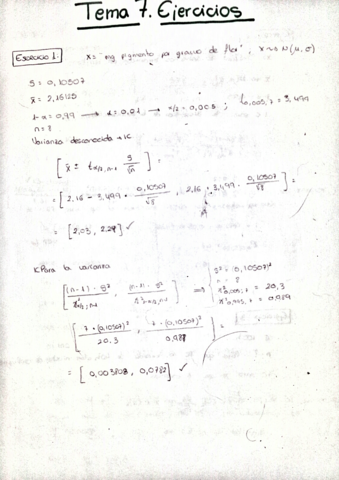 Tema 7. Ejercicios
EJERCICIO 1: X= "mg pigmento por gramo de flor", X ~ N(μ, σ)
S = 0,10507
x̄ = 2,16125
1-α = 0,99 → α = 0,01 → α/2 = 0,005 ; t0,005, 7 = 3,499
n = 8
Varianza desconocida → IC
[ x̄ ± tα/2, n-1 S/√n ] =
= [ 2,16 - 3,499 · 0,10507/√8 , 2,16 + 3,499 · 0,10507/√8 ] =
= [ 2,03 , 2,29 ] ✓
IC Para la varianza
[ (n-1) · S²/χ²α/2, n-1 , (n-1) · S²/χ²1-α/2, n-1 ] → S² = (0,10507)²
n = 8
χ²0,005, 7 = 20,3
χ²0,995, 7 = 0,989
[ 7 · (0,10507)²/20,3 , 7 · (0,10507)²/0,989 ] =
= [ 0,003808 , 0,0782 ] ✓